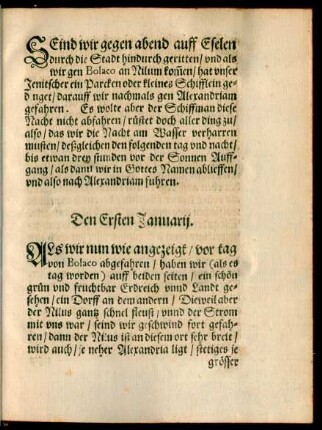 SEind wir gegen abend auff Eselen
durch die Stadt hindurch geritten / und als
wir gen Bolaco an Nilum kom̃en / hat vnser
Jenitscher ein Parcken oder kleines Schifflein ge-
dinget / darauff wir nachmals gen Alexandriam
gefahren. Es wolte aber der Schiffman diese
Nacht nicht abfahren / rüstet doch aller ding zu /
also / das wir die Nacht am Wasser verharren
musten / deßgleichen den folgenden tag und nacht /
bis etwan drey stunden vor der Sonnen Auff-
gang / als dann wir in Gottes Namen ablieffen /
und also nach Alexandriam fuhren.
Den Ersten Januarij.
ALs wir nun wie angezeigt / vor tag
von Bolaco abgefahren / haben wir (als es
tag worden) auff beiden seiten / ein schön
grün und fruchtbar Erdreich vnnd Landt ge-
sehen / ein Dorff an dem andern / Dieweil aber
der Nilus gantz schnel fleust / vnnd der Strom
mit vns war / seind wir geschwind fort gefah-
ren / dann der Nilus ist an diesem ort sehr breit /
wird auch / je neher Alexandria ligt / stetiges je
grösser